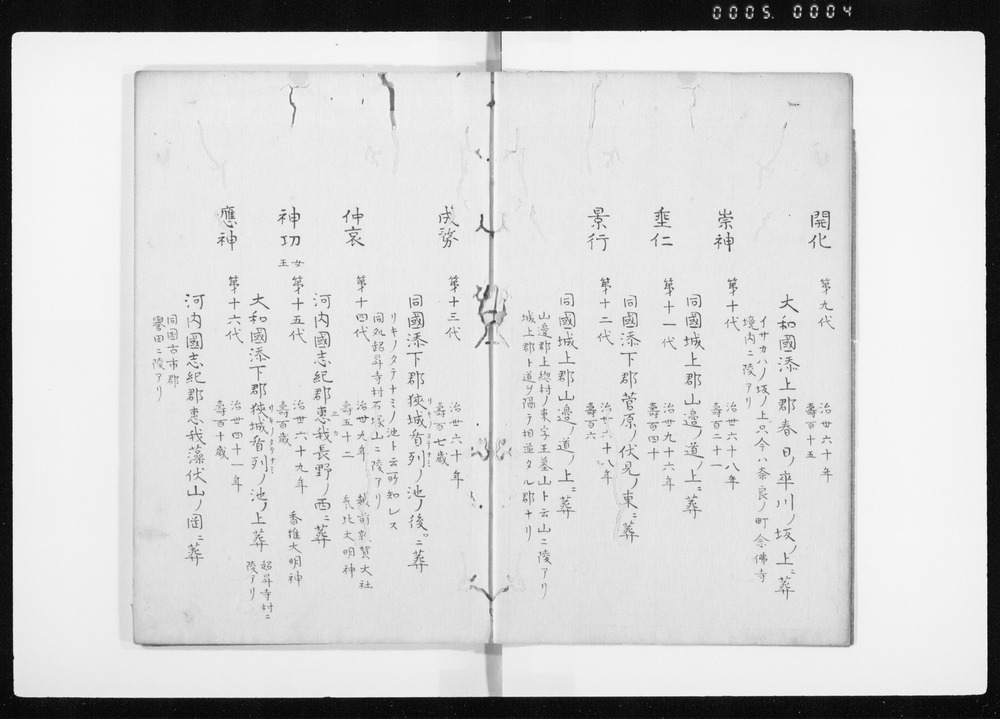 0005 0004
開化
第九代
治世六十年
壽百十五
大和國添上郡春日ノ率川ノ坂ノ上ニ葬
イサカハノ坂ノ上只今ハ奈良ノ町念佛寺
境内ニ陵アリ
崇神
第十代
治世六十八年
壽百二十一
同國城上郡山邊ノ道ノ上ニ葬
垂仁
第十一代
治世九十六年
壽百四十
同國添下郡菅原ノ伏見ノ東ニ葬
景行
第十二代
治世六十八年
壽百六
同國城上郡山邊ノ道ノ上ニ葬
山邊郡上総村ノ東字王墓山ト云山ニ陵アリ
城上郡ト道ヲ隔テ相並タル郡ナリ
成務
第十三代
治世六十年
壽百七歳
同國添下郡狹城盾列ノ池ノ後ニ葬
リキノタテナミ
リキノタテナミノ池ト云所知レス
同処超昇寺村石塚山ニ陵アリ
仲哀
第十四代
治世九年
壽五十二
越前敦賀大社
氣比大明神
河内國志紀郡惠我長野ノ西ニ葬
エカ
神功
女王
第十五代
治世六十九年
壽百歳
香椎大明神
大和國添下郡狹城盾列ノ池ノ上葬
リキノタテナミ
超昇寺村ニ
陵アリ
應神
第十六代
治世四十一年
壽百十歳
河内國志紀郡惠我藻伏山ノ岡ニ葬
同国古市郡
譽田ニ陵アリ